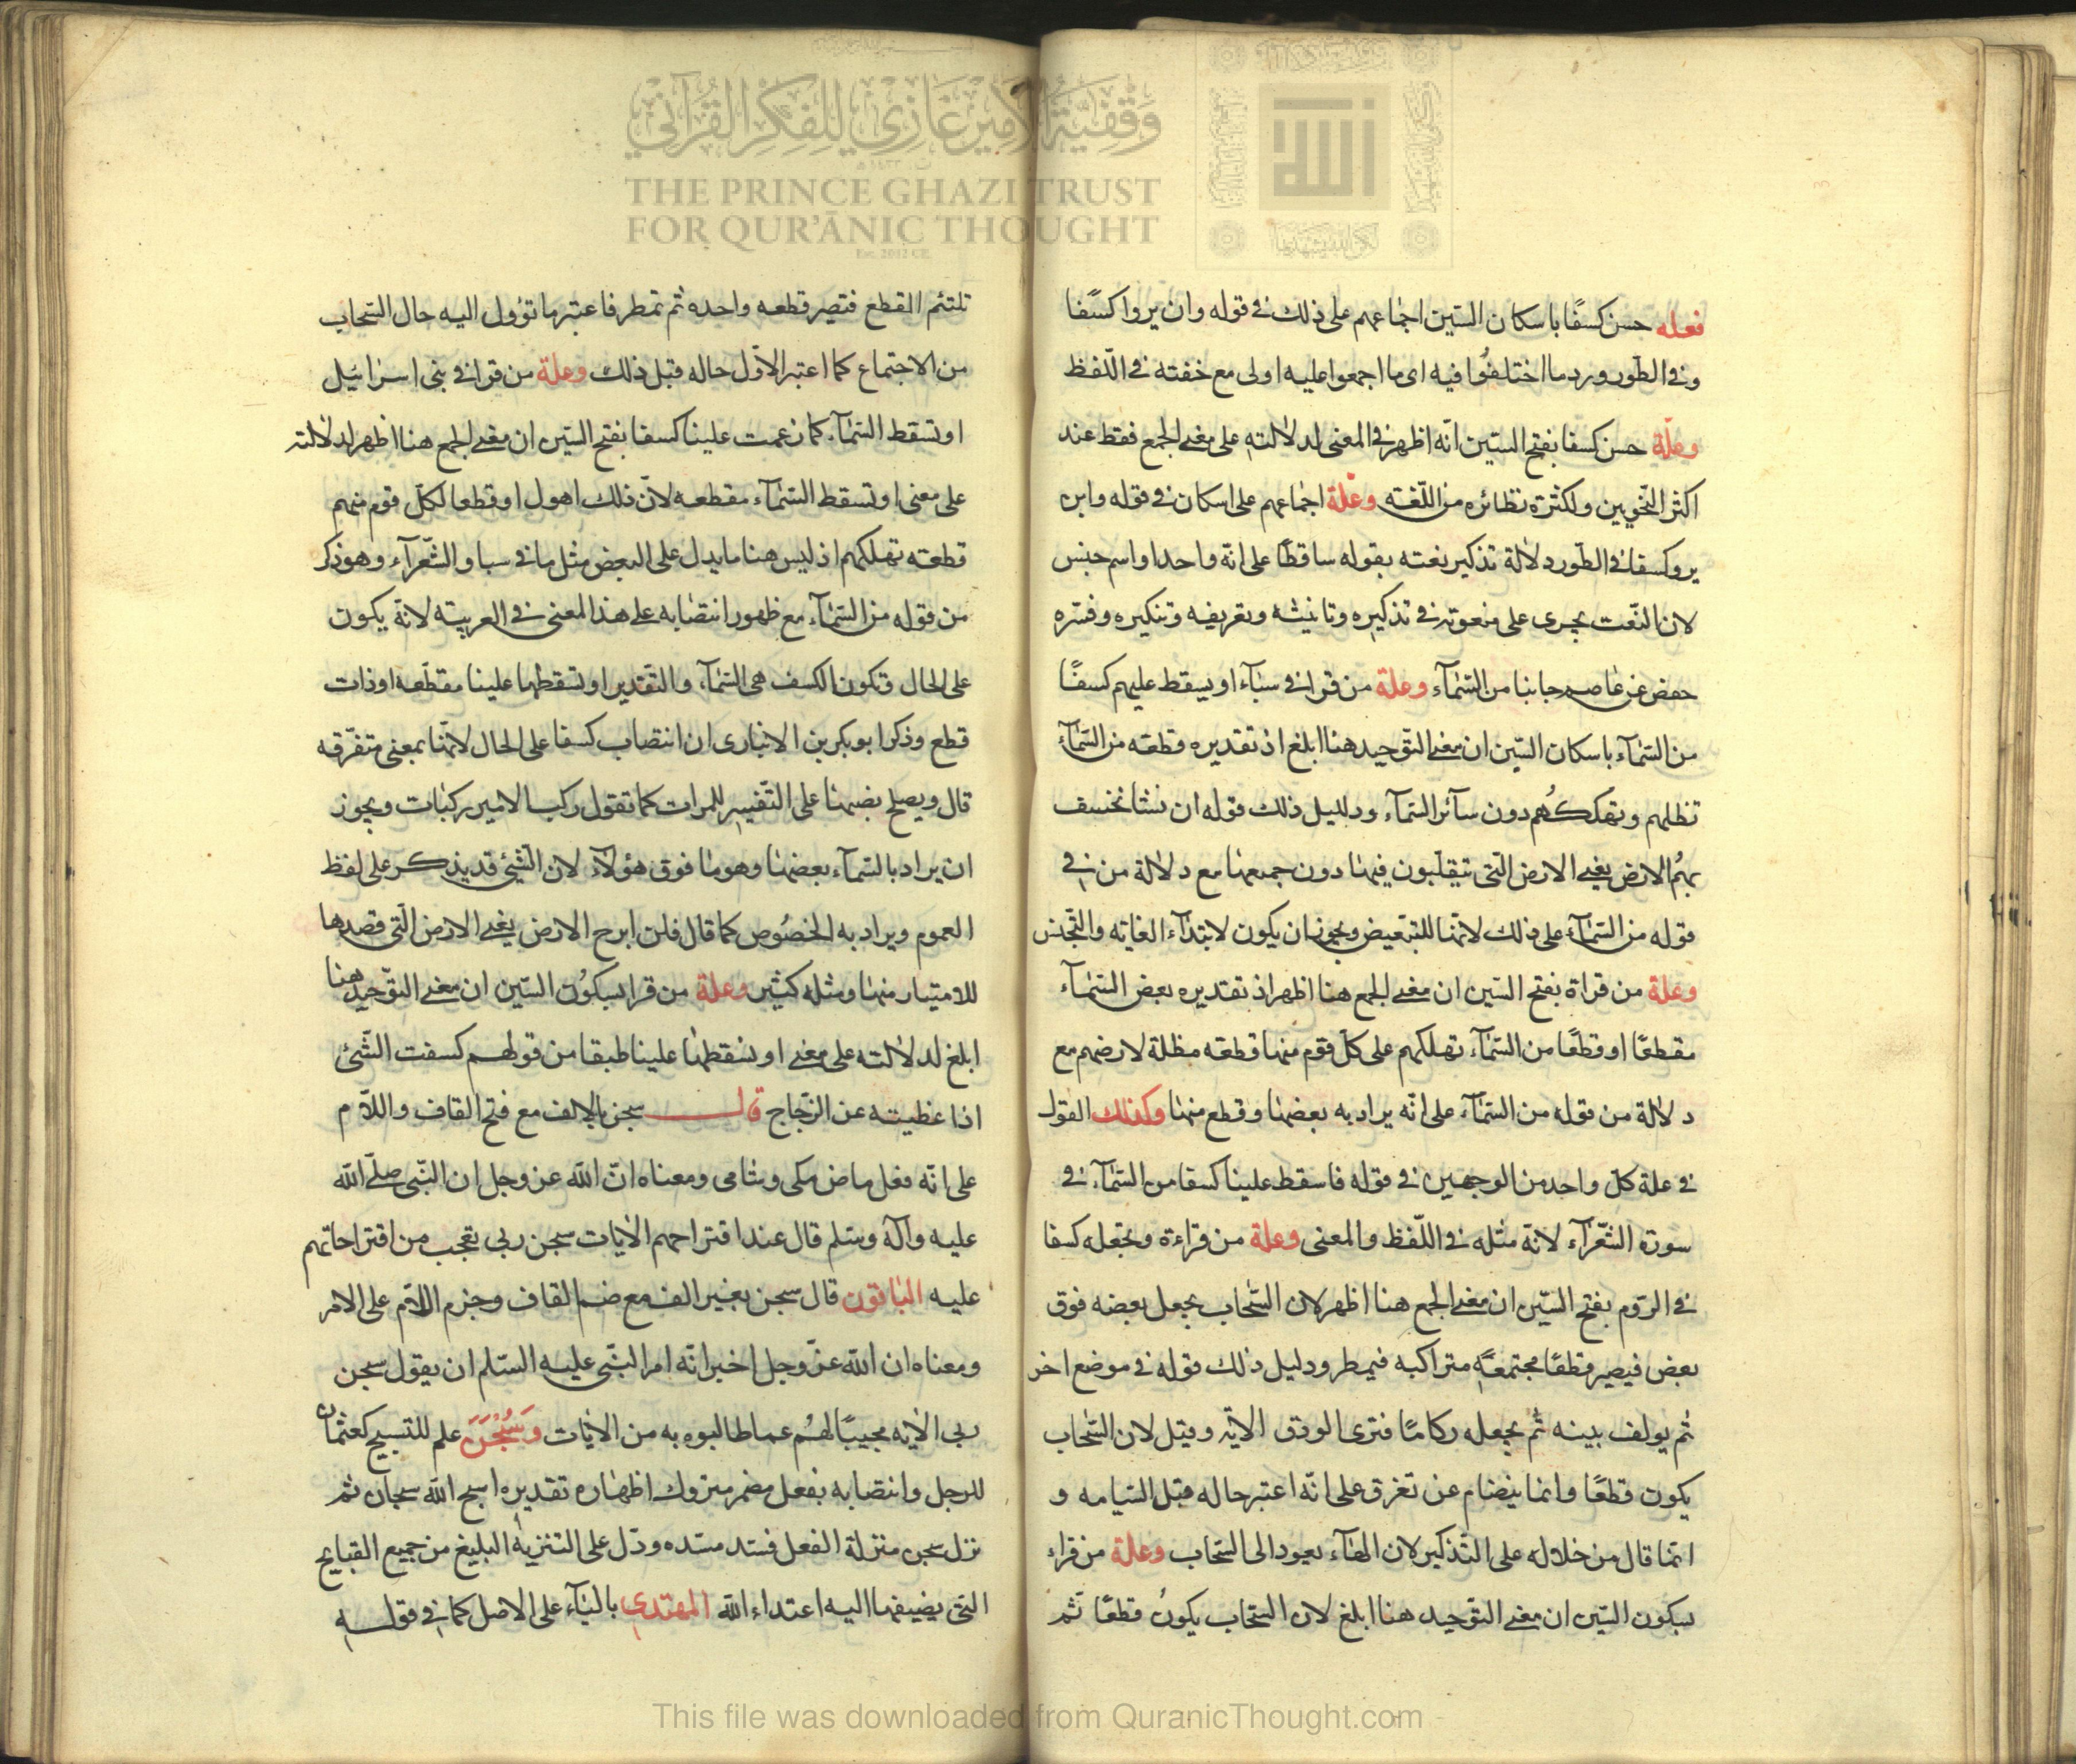 وقفية الأمير غازي للفكر القرآني
THE PRINCE GHAZI TRUST
FOR QUR'ĀNIC THOUGHT
Est. 2012 CE
فعله حسن كسفًا باسكان السّين اجماعهم على ذلك في قوله وان يروا كسفًا
وفي الطور ورد ما اختلفوا فيه اى ما اجمعوا عليه اولى مع خفته في اللّفظ
وعلّة حسن كسفا بفتح السّين انّه اظهر في المعنى لدلالته على معنى الجمع فقط عند
اكثر النّحويين ولكثرة نظائره من اللّغته وعلّة اجماعهم على اسكان في قوله وان
يروكسفا في الطّور دلالة تذكير نعته بقوله ساقطًا على انّه واحدا واسم جنس
لان النّعت يجرى على منعوته في تذكيره وتانيثه وتعريفه وتنكيره وفسّره
حفص عن عاصم جانبا من السّمآء وعلة من قرا في سبآء او يسقط عليهم كسفًا
من السّمآء باسكان السّين ان معنى التّوحيد هنا ابلغ اذ تقديره قطعته من السّمآء
تظلهم وتهلكهم دون سآئر السّمآء ودلليل ذلك قوله ان نشا نخسف
بهم الارض يعنى الارض الّتى يتقلّبون فيها دون جميعها مع دلالة من في
قوله من السّمآء على ذلك لانّها للتبّعيض ويجوز ان يكون لابتدآء الغايته والتّجنس
وعلة من قراة بفتح السّين ان معنى الجمع هنا اظهر اذ تقديره بعض السّمآء
مقطعًا او قطعًا من السّمآء تهلكهم على كلّ قوم منها قطعته مظلة لارضهم مع
دلالة من قوله من السّمآء على انّه يراد به بعضها وقطع منها وكذلك القول
في علة كلّ واحد من الوجهين في قوله فاسقط علينا كسفا من السّمآء في
سورة الشّعرآء لانّه مثله في اللّفظ والمعنى وعلة من قراءة ويجعله كسفا
في الرّوم بفتح السّين ان معنى الجمع هنا اظهر لان السّحاب يجعل بعضه فوق
بعض فيصير قطعًا مجتمعةً متراكبه فيمطر ودليل ذلك قوله في موضع اخر
ثم يولف بينه ثم يجعله ركامًا فترى الودق الايّه وقيل لان السّحاب
يكون قطعًا وانما ينضام عن تفرق على انّه اعتبر حاله قبل التيامه و
انّما قال من خلاله على التّذكير لان الهآء يعود الى السّحاب وعلة من قراء
بسكون السّين ان معنى التّوحيد هنا ابلغ لان السّحاب يكونُ قطعًا ثم
تلتئم القطع فتصير قطعه واحده ثم تمطر فاعتبر ما تؤول اليه حال السّحاب
من الاجتماع كما اعتبر الاوّل حاله قبل ذلك وعلة من قرا في بنى اسرائيل
او تسقط السّمآء كما زعمت علينا كسفا بفتح السّين ان معنى الجمع هنا اظهر لدلالته
على معنى او تسقط السّمآء مقطعه لانّ ذلك اهول او قطعا لكلّ قوم منهم
قطعته تهلكهم اذ ليس هنا ما يدل على البعض مثل ما في سبا والشّعرآء وهو ذكر
من قوله من السّمآء مع ظهور انتصابه على هذا المعنى في العربيته لانّه يكون
على الحال وتكون الكسف هى السّمآء والتقدير او تسقطها علينا مقطّعه او ذات
قطع وذكر ابو بكر بن الانبارى ان انتصاب كسفا على الحال لانّها بمعنى متفرّقه
قال ويصلح نصبها على التّفسير للمرات كما تقول ركب الامير ركبات ويجوز
ان يراد بالسّمآء بعضها وهو ما فوق هؤلآء لان الشّيئ قد يذكر على لفظ
العموم ويراد به الخصُوص كما قال فلن ابرح الارض يعنى الارض الّتى قصدها
للامتيار منها ومثله كثير وعلة من قرا بسكُون السّين ان معنى التّوحيد هنا
ابلغ لدلالته على معنى او تسقطها علينا طبقا من قولهم كسفت الشّئ
اذا غطيته عن الزجّاج قال سبحن بالالف مع فتح القاف واللّام
على انّه فعل ماض مكى وشامى ومعناه انّ اللّه عز وجل ان النّبى صلّى اللّه
عليه وآله وسّلم قال عند اقتراحهم الايات سبحن ربى تعجب من اقتراحاتهم
عليه الباقون قال سبحن بغير الف مع ضم القاف وجزم اللّام على الامر
ومعناه ان اللّه عزّ وجل اخبر انّه امر النبّى عليه السّلم ان يقول سبحن
ربى الايه مجيبًا لهُم عما طالبوه به من الايات وَسُبْحَنَ علم للتسبيح كعثمان
للرجل وانتصابه بفعل مضمر متروك اظهاره تقديره اسبح اللّه سبحان ثم
نزل سبحن منزلة الفعل فسّد مسّده ودّل على التنزيه البليغ من جميع القبايح
التى يضيفها اليه اعتداء اللّه المهتدى باليآء على الاصل كما في قوله
This file was downloaded from QuranicThought.com